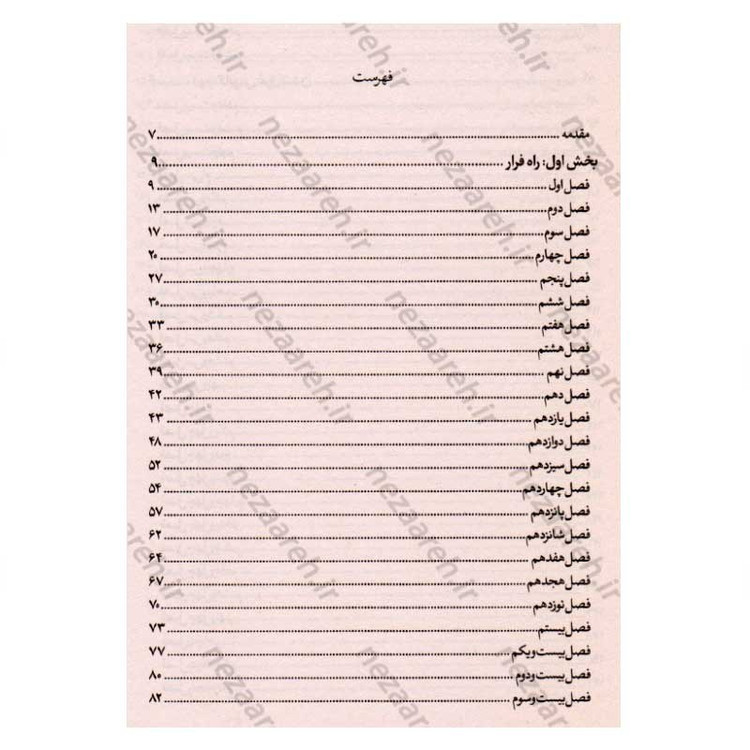 فهرست
مقدمه ........ ۷
بخش اول: راه فرار ........ ۹
فصل اول ........ ۹
فصل دوم ........ ۱۳
فصل سوم ........ ۱۷
فصل چهارم ........ ۲۰
فصل پنجم ........ ۲۷
فصل ششم ........ ۳۰
فصل هفتم ........ ۳۳
فصل هشتم ........ ۳۶
فصل نهم ........ ۳۹
فصل دهم ........ ۴۲
فصل یازدهم ........ ۴۳
فصل دوازدهم ........ ۴۸
فصل سیزدهم ........ ۵۲
فصل چهاردهم ........ ۵۴
فصل پانزدهم ........ ۵۷
فصل شانزدهم ........ ۶۲
فصل هفدهم ........ ۶۴
فصل هجدهم ........ ۶۷
فصل نوزدهم ........ ۷۰
فصل بیستم ........ ۷۳
فصل بیست و یکم ........ ۷۷
فصل بیست و دوم ........ ۸۰
فصل بیست و سوم ........ ۸۲
nezaareh.ir